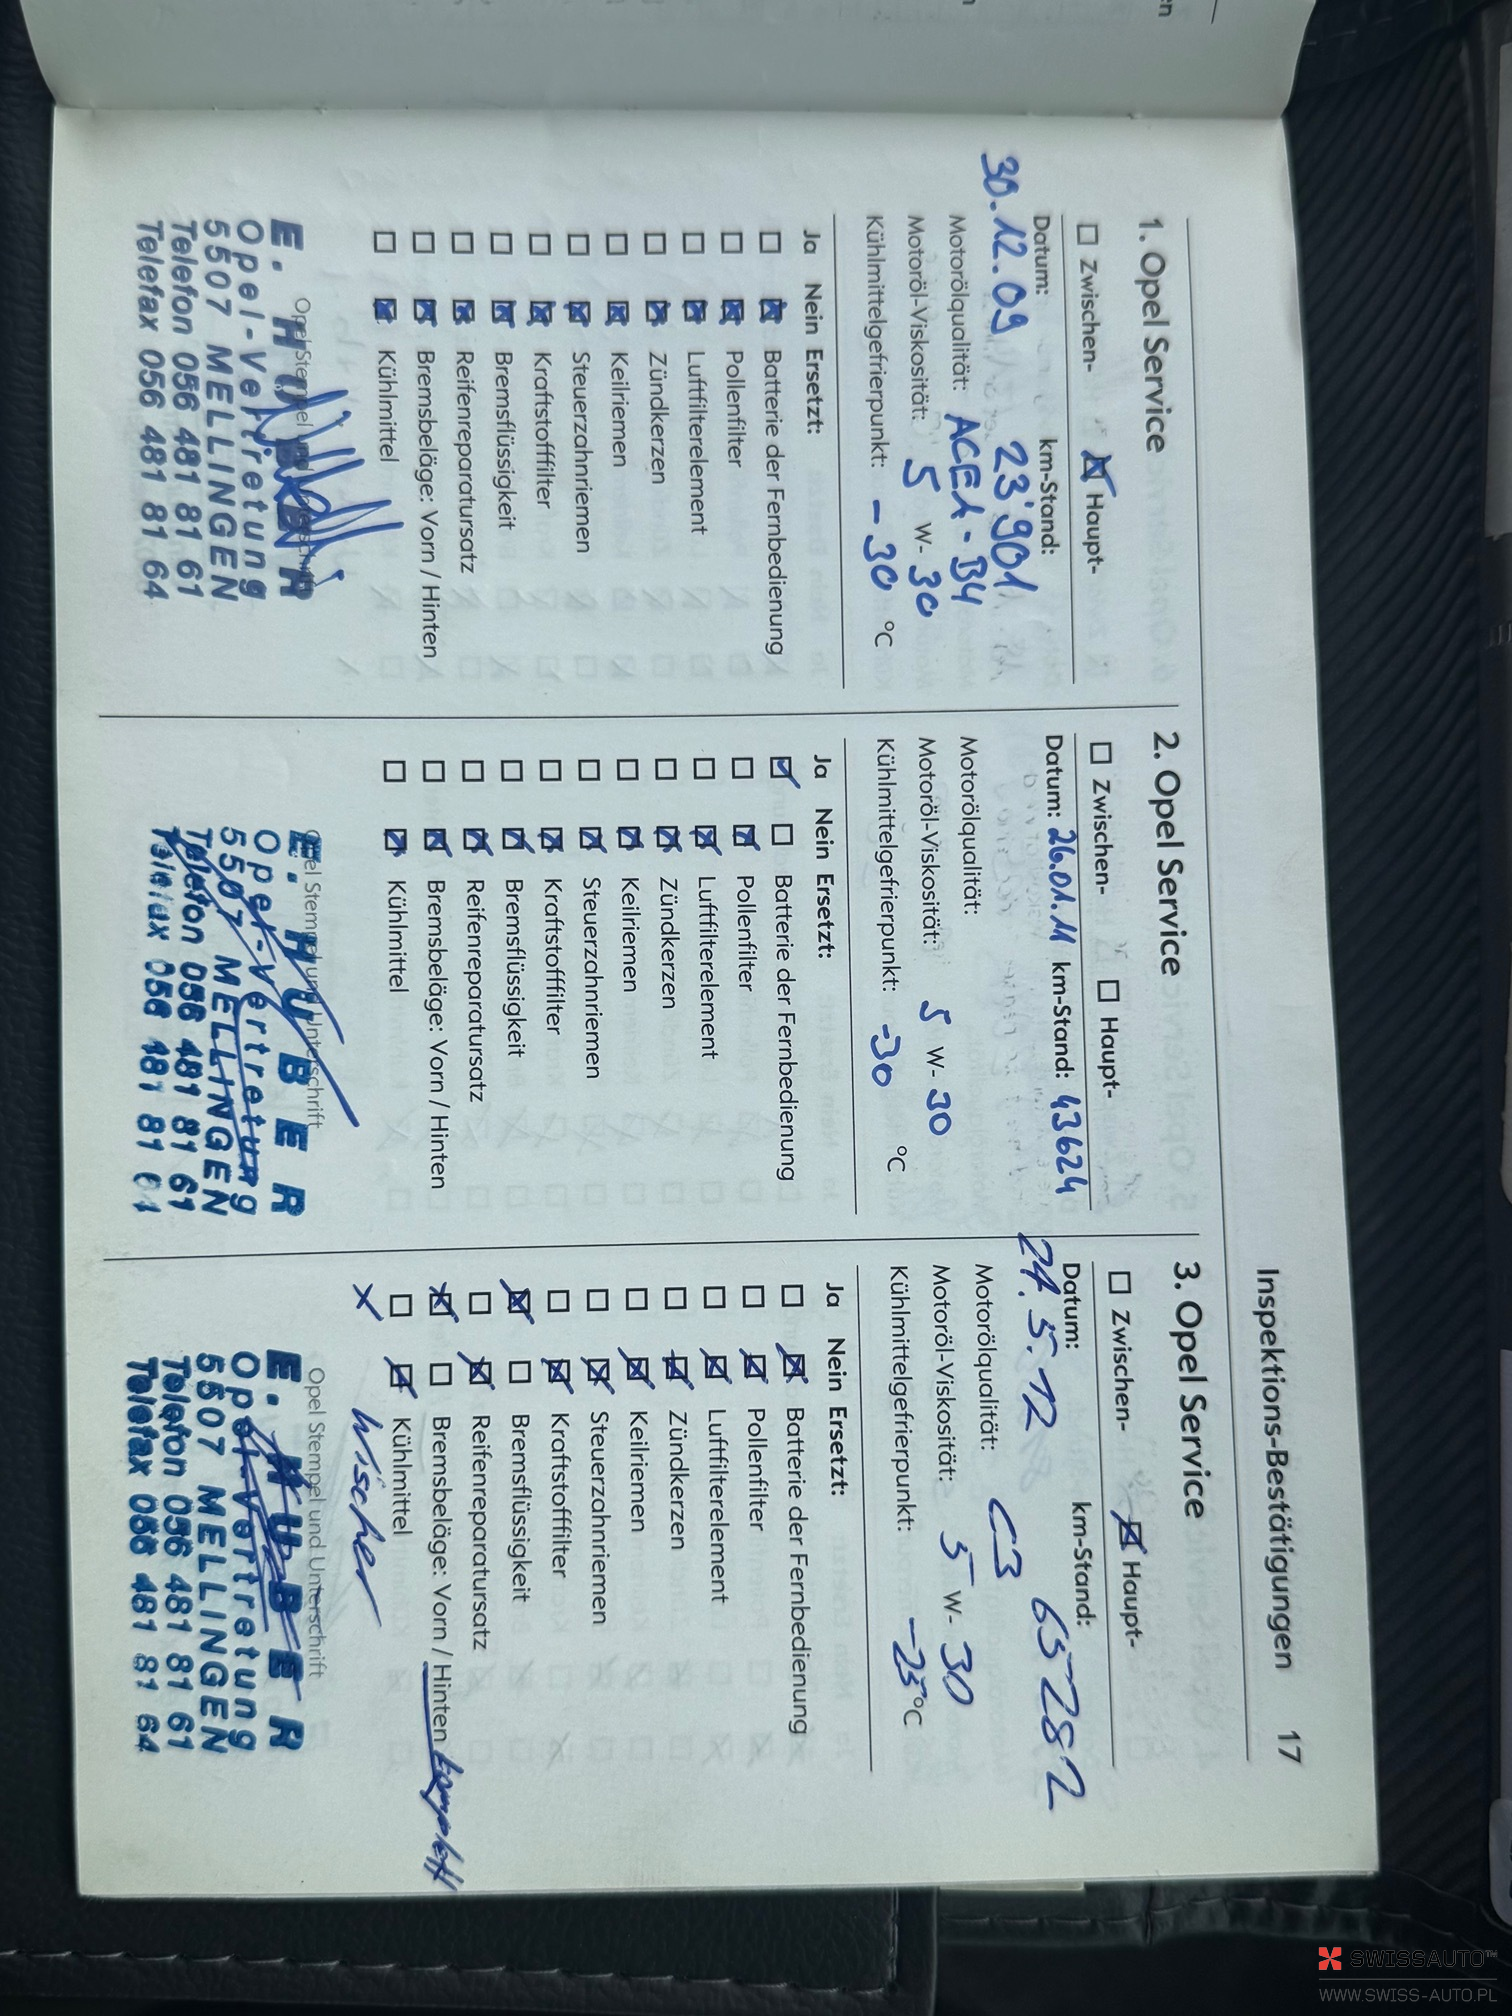 Inspektions-Bestätigungen 17
1. Opel Service
☐ Zwischen- ☒ Haupt-
Datum: km-Stand:
30.12.09 23'901
Motorölqualität: ACEA - B4
Motoröl-Viskosität: 5 W- 30
Kühlmittelgefrierpunkt: -30 °C
Ja Nein Ersetzt:
☐ ☒ Batterie der Fernbedienung
☐ ☒ Pollenfilter
☐ ☒ Luftfilterelement
☐ ☒ Zündkerzen
☐ ☒ Keilriemen
☐ ☒ Steuerzahnriemen
☐ ☒ Kraftstofffilter
☐ ☒ Bremsflüssigkeit
☐ ☒ Reifenreparatursatz
☐ ☒ Bremsbeläge: Vorn / Hinten
☐ ☒ Kühlmittel
Opel Stempel und Unterschrift
E. HUBER
Opel-Vertretung
5507 MELLINGEN
Telefon 056 481 81 61
Telefax 056 481 81 64
2. Opel Service
☐ Zwischen- ☐ Haupt-
Datum: 26.01.11 km-Stand: 43624
Motorölqualität:
Motoröl-Viskosität: 5 W- 30
Kühlmittelgefrierpunkt: -30 °C
Ja Nein Ersetzt:
☑ ☐ Batterie der Fernbedienung
☐ ☒ Pollenfilter
☐ ☒ Luftfilterelement
☐ ☒ Zündkerzen
☐ ☒ Keilriemen
☐ ☒ Steuerzahnriemen
☐ ☒ Kraftstofffilter
☐ ☒ Bremsflüssigkeit
☐ ☒ Reifenreparatursatz
☐ ☒ Bremsbeläge: Vorn / Hinten
☐ ☒ Kühlmittel
Opel Stempel und Unterschrift
E. HUBER
Opel-Vertretung
5507 MELLINGEN
Telefon 056 481 81 61
Telefax 056 481 81 64
3. Opel Service
☐ Zwischen- ☒ Haupt-
Datum: km-Stand:
24.5.12 65282
Motorölqualität: C3
Motoröl-Viskosität: 5 W- 30
Kühlmittelgefrierpunkt: -25 °C
Ja Nein Ersetzt:
☐ ☒ Batterie der Fernbedienung
☐ ☒ Pollenfilter
☐ ☒ Luftfilterelement
☐ ☒ Zündkerzen
☐ ☒ Keilriemen
☐ ☒ Steuerzahnriemen
☐ ☒ Kraftstofffilter
☒ ☐ Bremsflüssigkeit
☐ ☒ Reifenreparatursatz
☒ ☐ Bremsbeläge: Vorn / Hinten komplett
☐ ☒ Kühlmittel
x Wischer
Opel Stempel und Unterschrift
E. HUBER
Opel-Vertretung
5507 MELLINGEN
Telefon 056 481 81 61
Telefax 056 481 81 64
SWISSAUTO™
WWW.SWISS-AUTO.PL